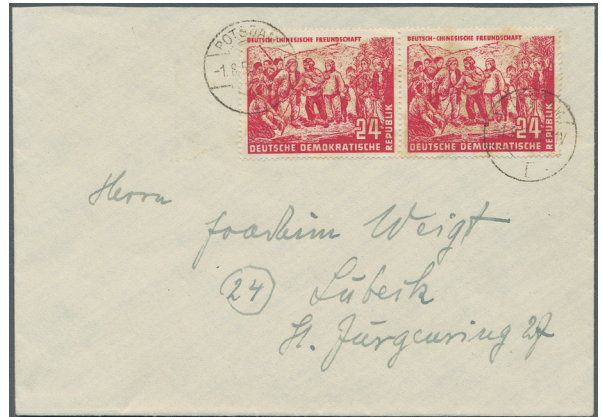 DEUTSCH-CHINESISCHE FREUNDSCHAFT
24
DEUTSCHE DEMOKRATISCHE
REPUBLIK
DEUTSCH-CHINESISCHE FREUNDSCHAFT
24
DEUTSCHE DEMOKRATISCHE
REPUBLIK
POTSDAM
-1.8.5
Herrn
Joachim Weigt
(24) Lübeck
St. Jürgenring 27